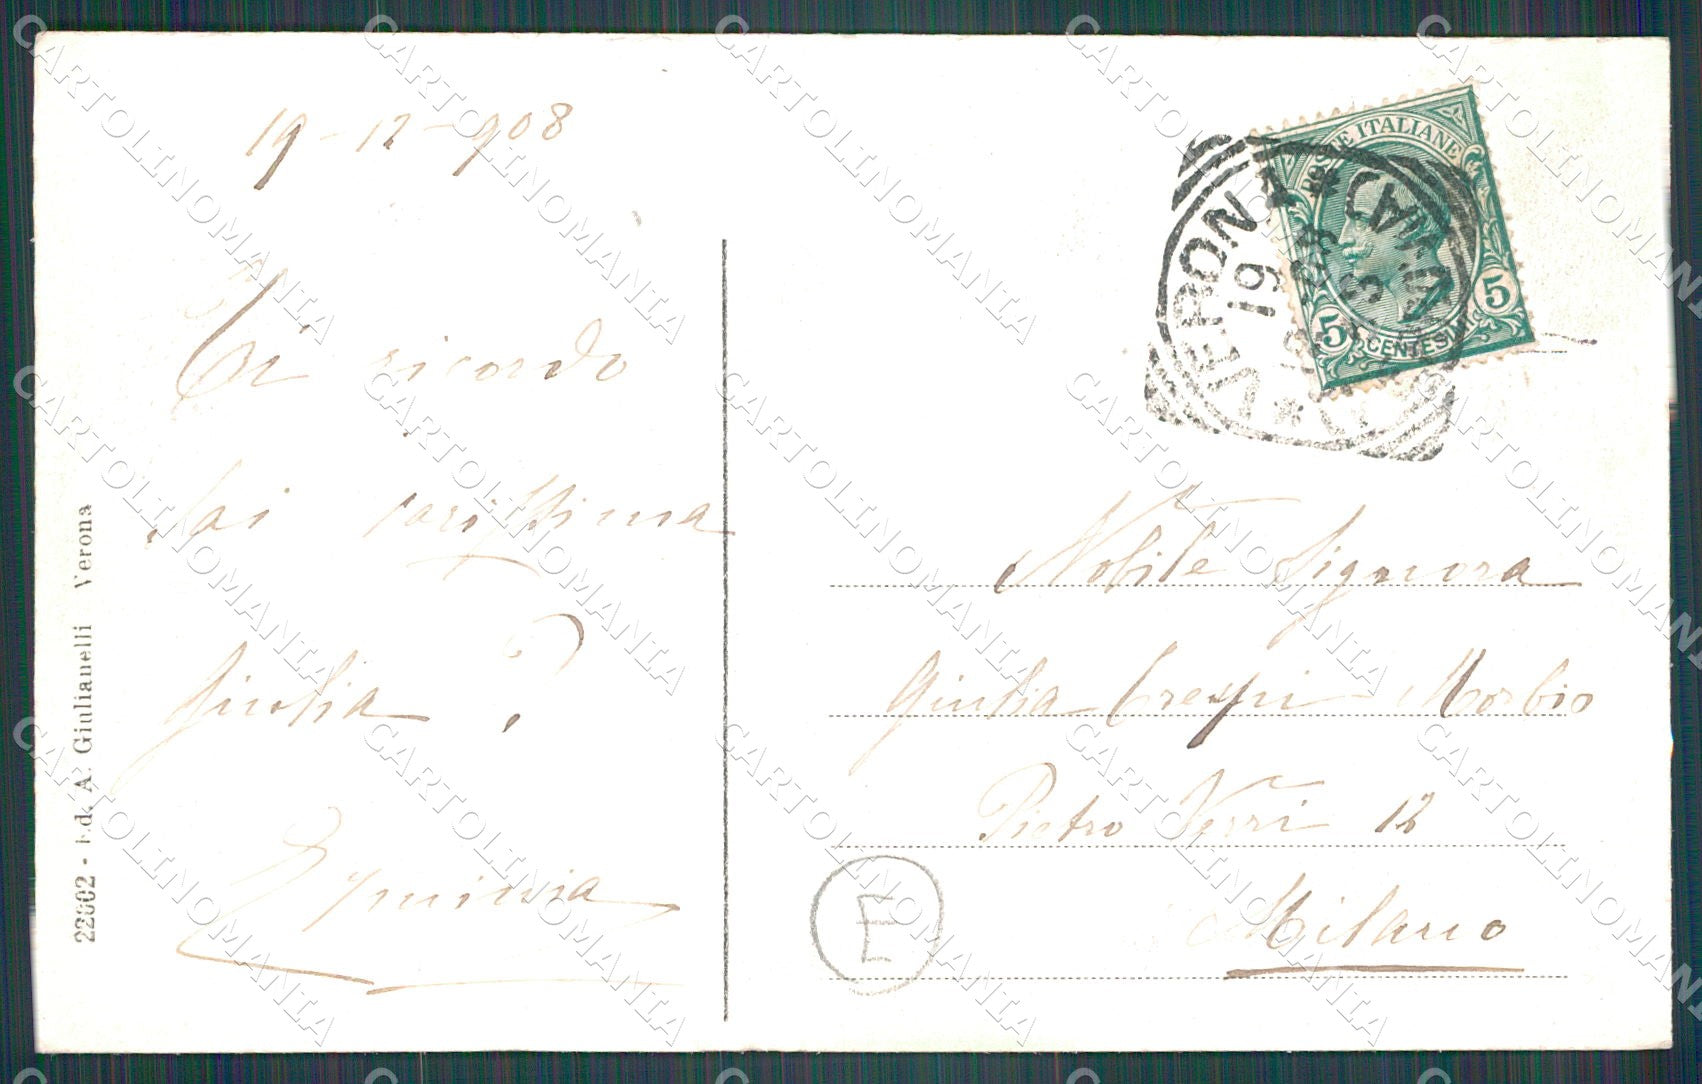 19-12-908
Ti ricordo
sai carissima
Giulia?
22002 - Ed. A. Giulianelli Verona
POSTE ITALIANE
5 CENTESIMI 5
VERONA
19
Nobile Signora
Giulia Crespi Morbio
Pietro Verri 12
Milano
E
CARTOLINOMANIA